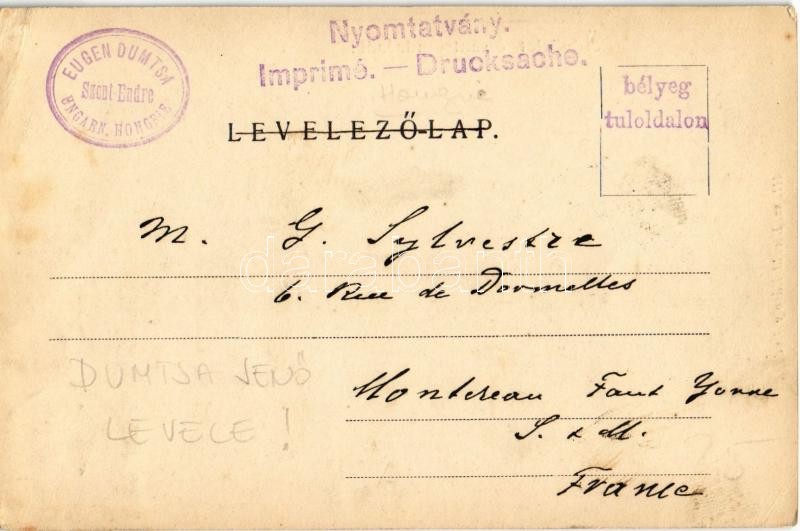 Nyomtatvány.
Imprimé. — Drucksache.
EUGEN DUMTSA
Szent-Endre
UNGARN, HONGRIE.
bélyeg
tuloldalon
Hongrie
LEVELEZŐ-LAP.
M. G. Sylvestre
darabanth
6. Rue de Dormelles
DUMTSA JENŐ
LEVELE!
Montereau Faut Yonne
S. & M.
France